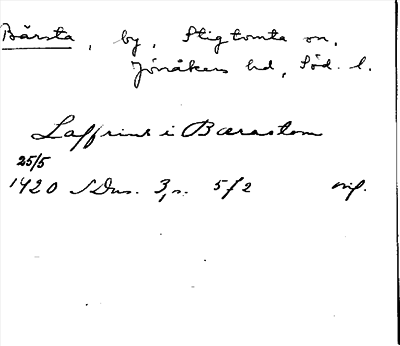 Bärsta, by, Stigtomta sn,
Jönåkers hd, Söd. l.
Laffrins i Bærastom
25/5
1420 SDns. 3, s. 572 orig.